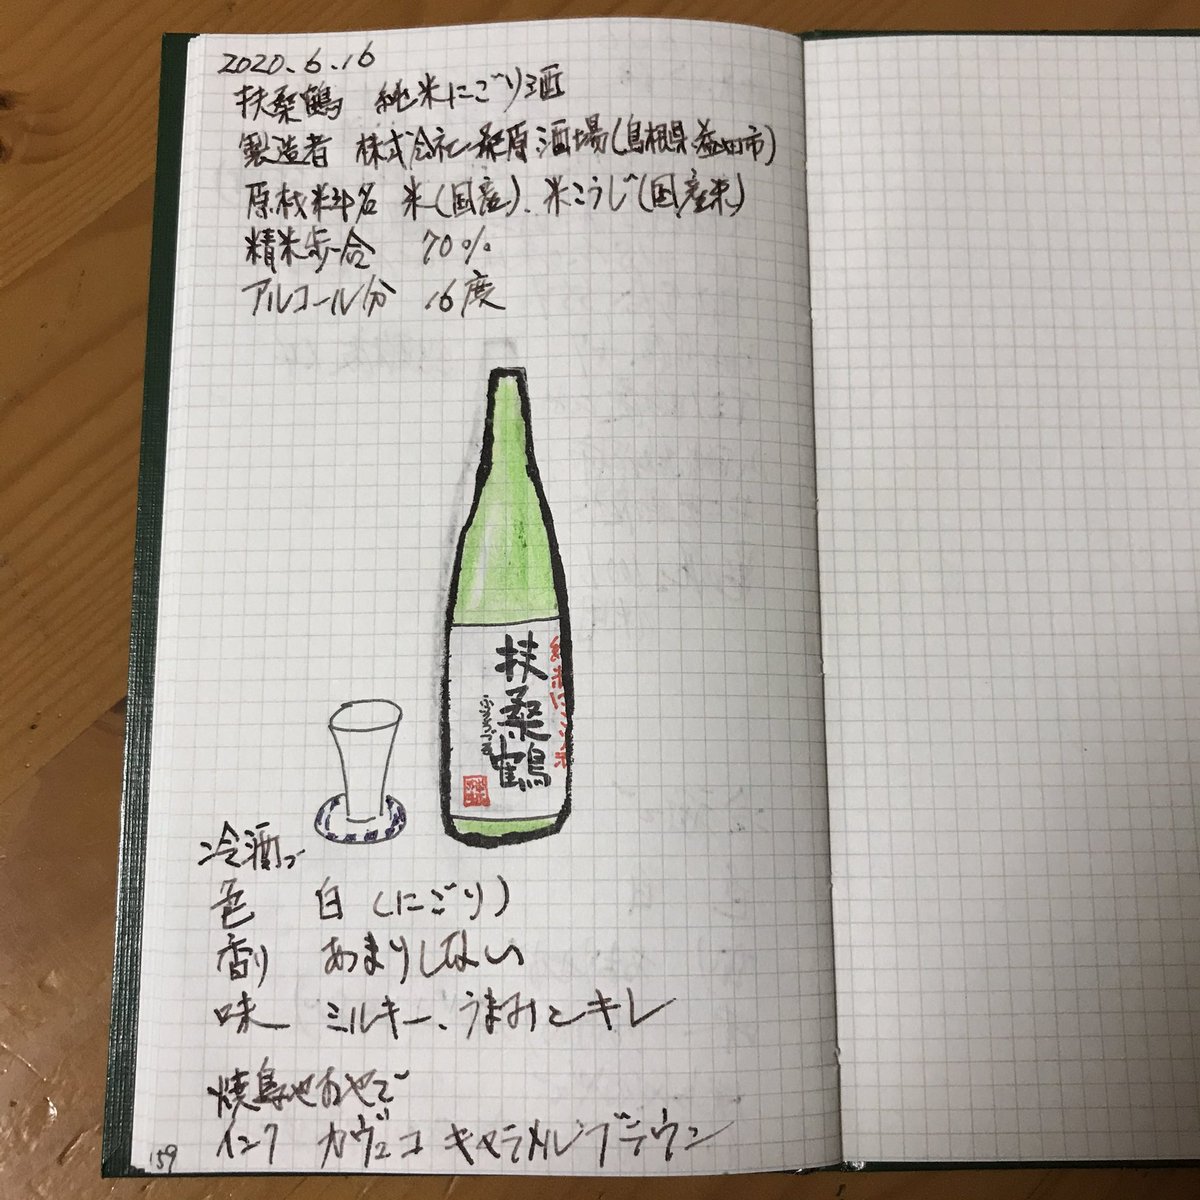 2020.6.16
扶桑鶴 純米にごり酒
製造者 株式会社桑原酒場(島根県益田市)
原材料名 米(国産)、米こうじ(国産米)
精米歩合 70%
アルコール分 16度
扶桑鶴
ふそうづる
純米にごり酒
冷酒で
色 白(にごり)
香り あまりしない
味 ミルキー、うまみとキレ
焼鳥
インク カヴェコ キャラメルブラウン
159